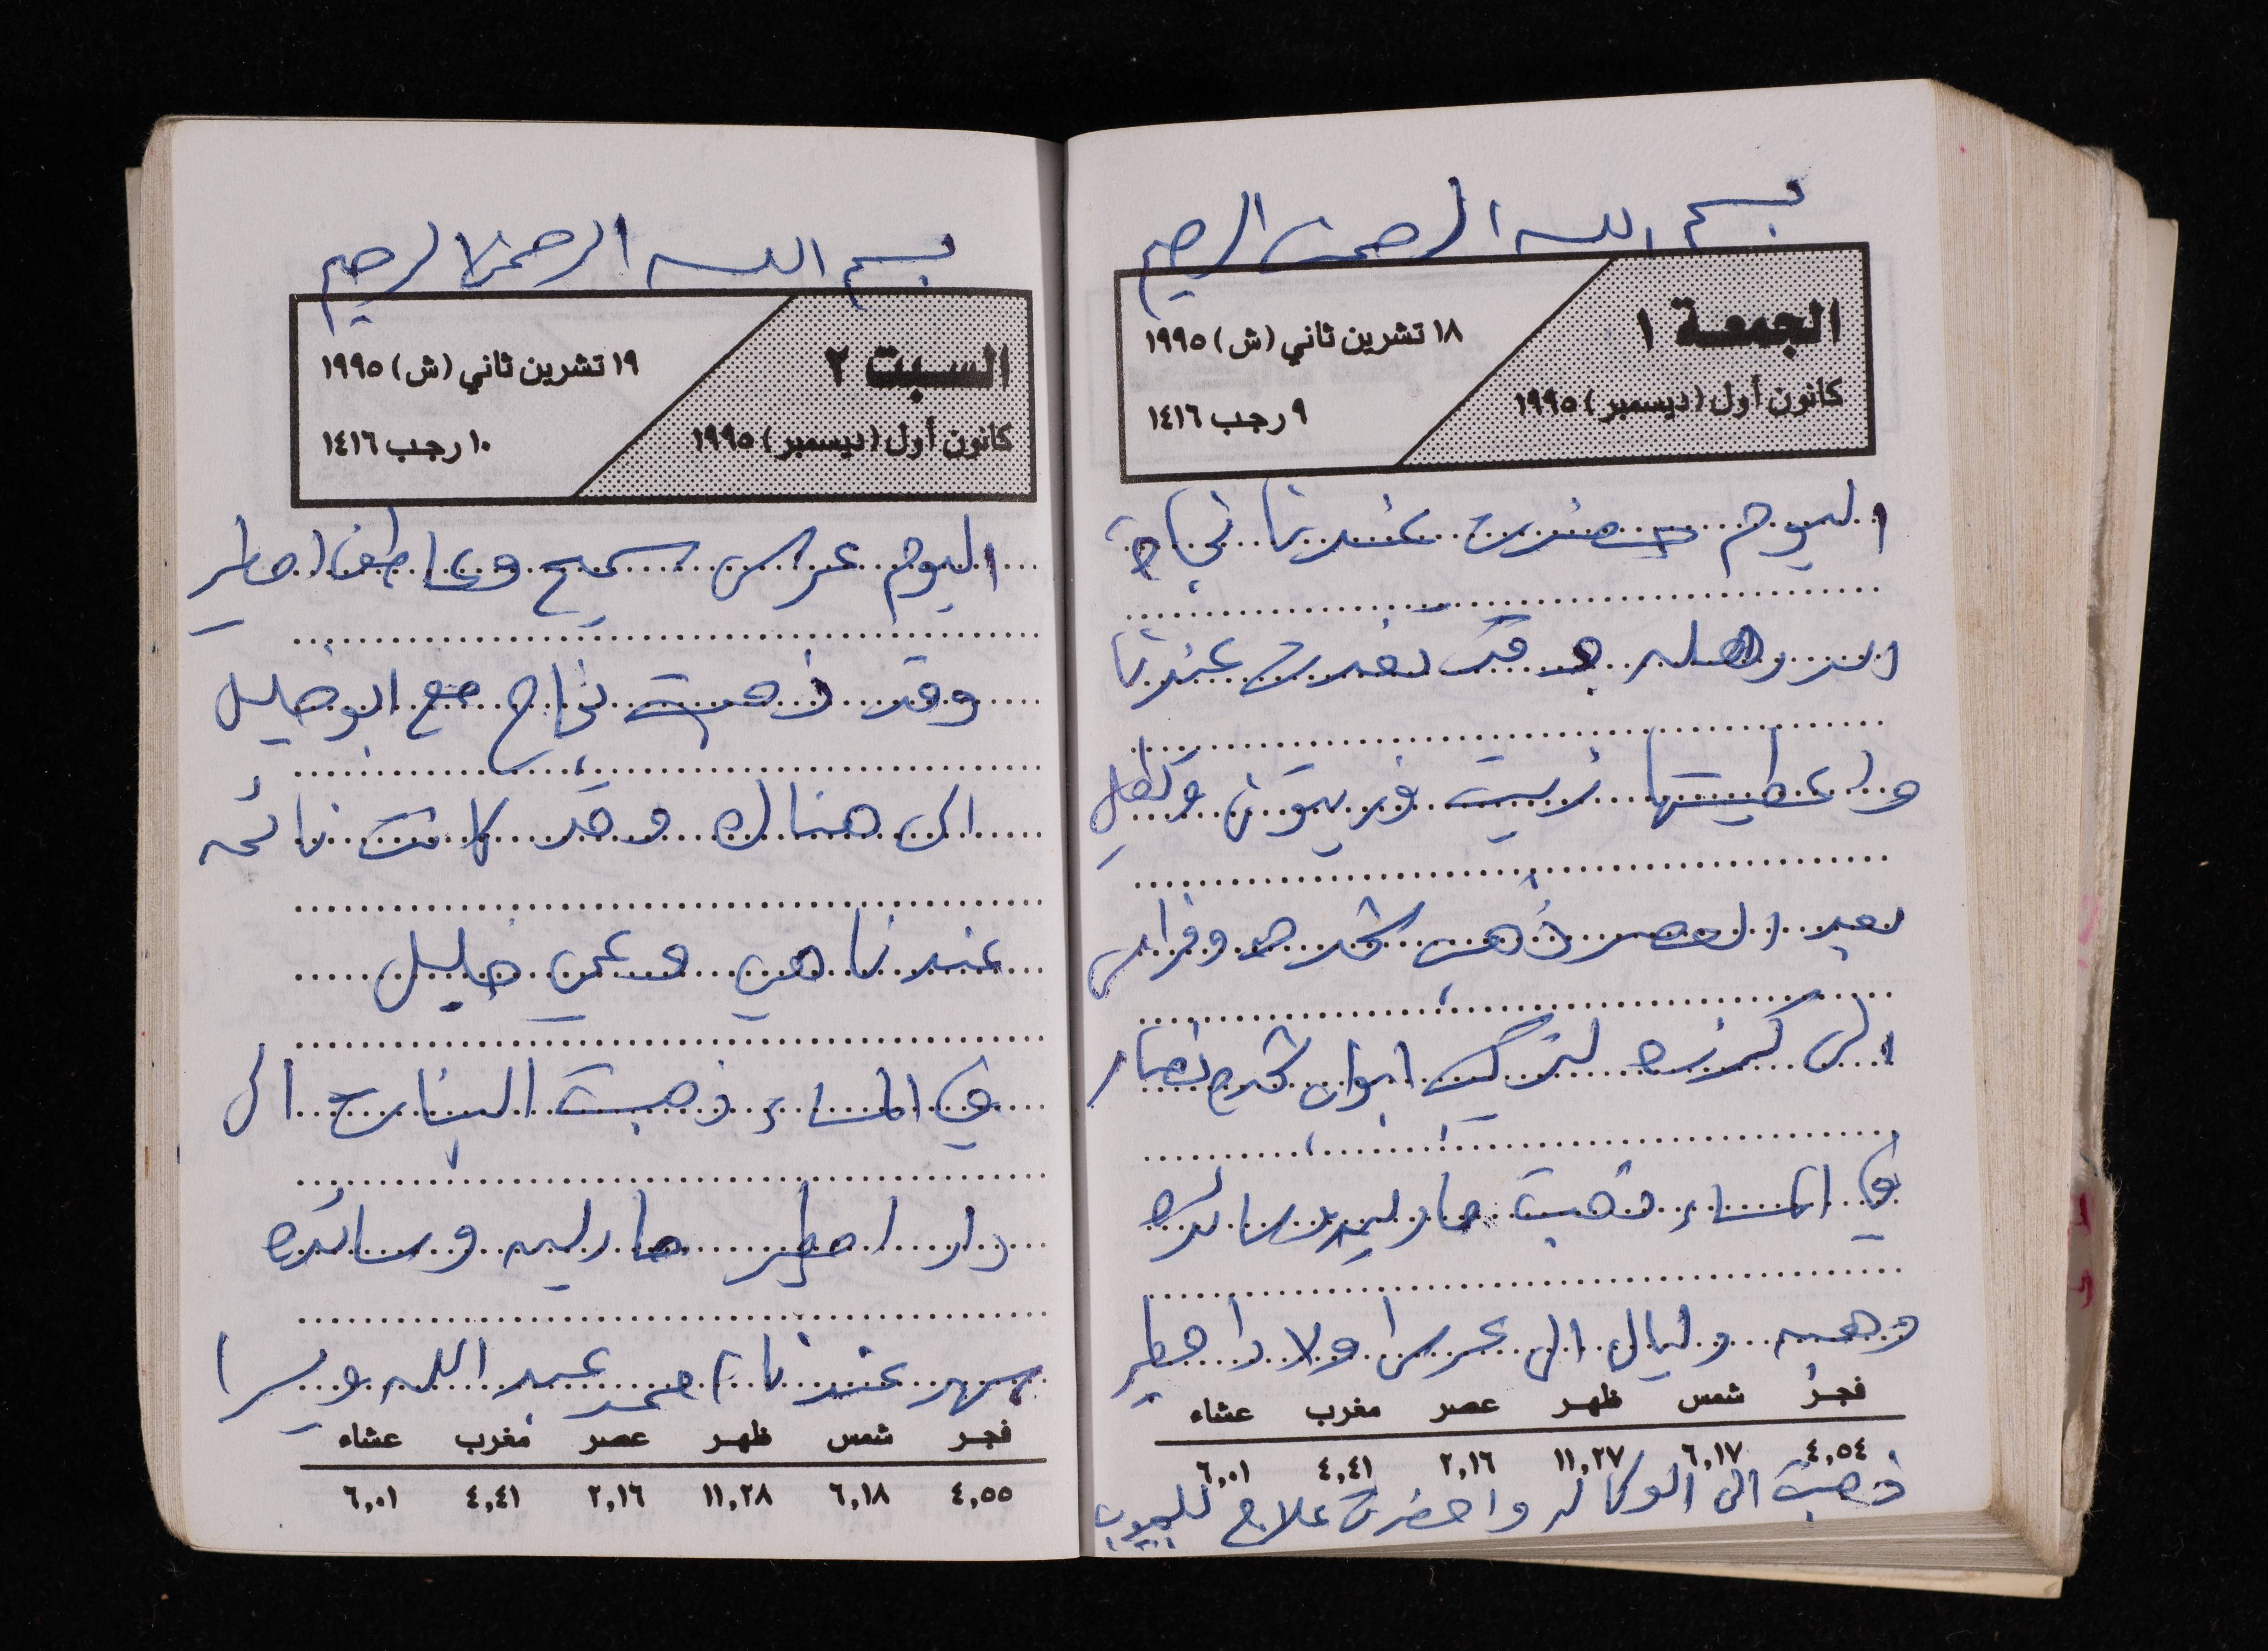 بسم الله الرحمن الرحيم
الجمعة ١
كانون أول (ديسمبر) ١٩٩٥
١٨ تشرين ثاني (ش) ١٩٩٥
٩ رجب ١٤١٦
اليوم حضرت عندنا نجاح
عندنا
واعطيتها زيت وزيتون
بعد العصر ذهب وفراس
الى لتركيب ابواب
في المساء ذهبت مارليه وسائده
وهبه وليال الى عرس اولاد امطير
فجر شمس ظهر عصر مغرب عشاء
٤,٥٤ ٦,١٧ ١١,٢٧ ٢,١٦ ٤,٤١ ٦,٠١
ذهبت الى الوكاله واحضرت علاج
بسم الله الرحمن الرحيم
السبت ٢
كانون أول (ديسمبر) ١٩٩٥
١٩ تشرين ثاني (ش) ١٩٩٥
١٠ رجب ١٤١٦
اليوم عرس سميح وعاطف امطير
وقد ذهبت نجاح مع ابو خليل
الى هناك وقد كانت نائمه
عندنا هي وعمي خليل
في المساء ذهبت البنات الى
دار امطير مارليه وسائده
سهر عندنا محمد عبد الله ويسرا
فجر شمس ظهر عصر مغرب عشاء
٤,٥٥ ٦,١٨ ١١,٢٨ ٢,١٦ ٤,٤١ ٦,٠١